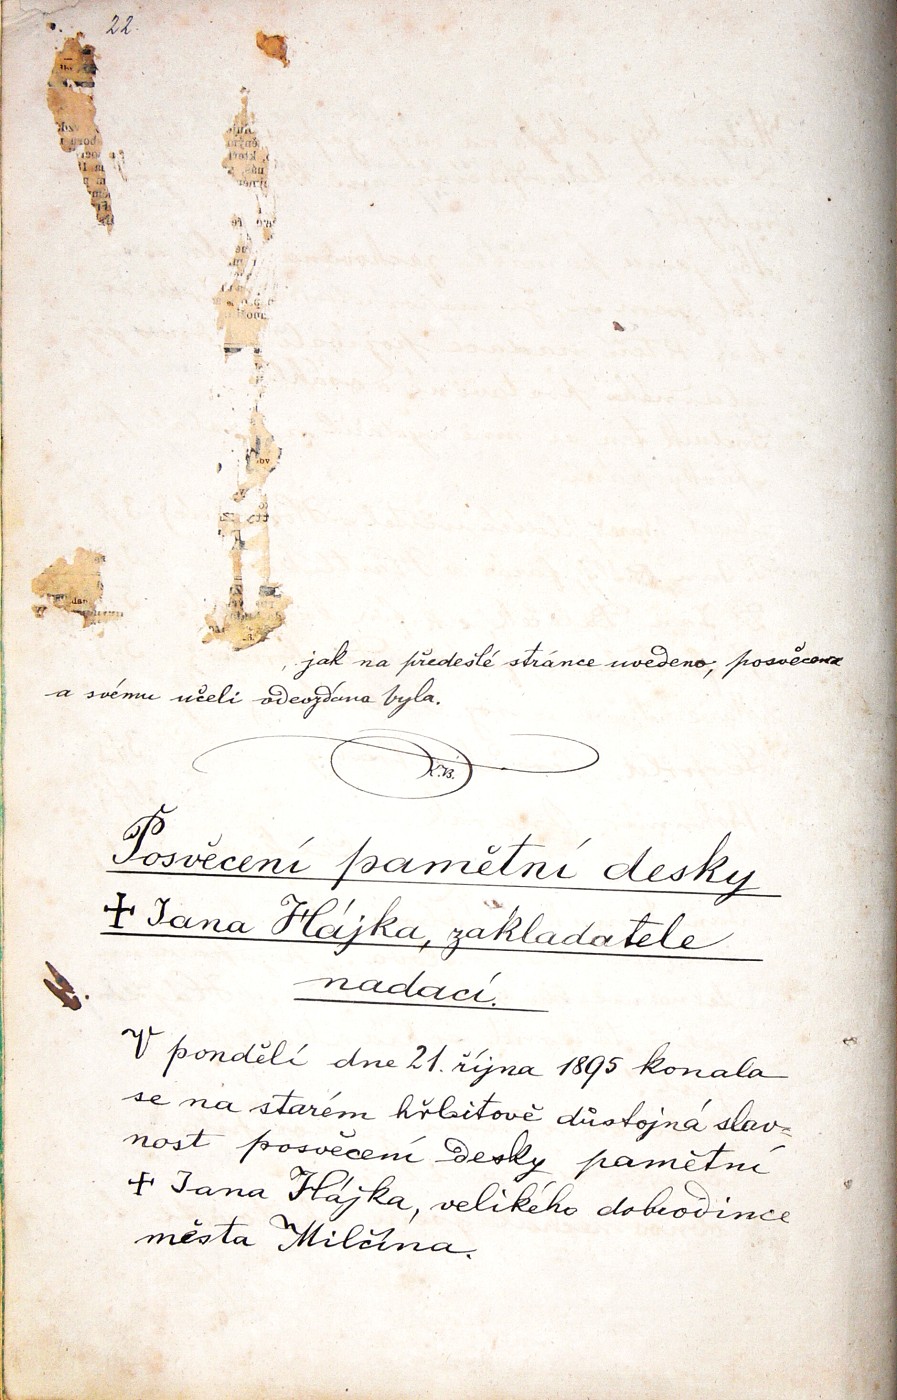 22
jak na předešlé stránce uvedeno, posvěcena
a svému učeli odevzdána byla.
K.B.
Posvěcení pamětní desky
✝ Jana Hájka, zakladatele
nadací.
V pondělí dne 21. října 1895 konala
se na starém hřbitově důstojná slav=
nost posvěcení desky pamětní
✝ Jana Hájka, velikého dobrodince
města Milčína.